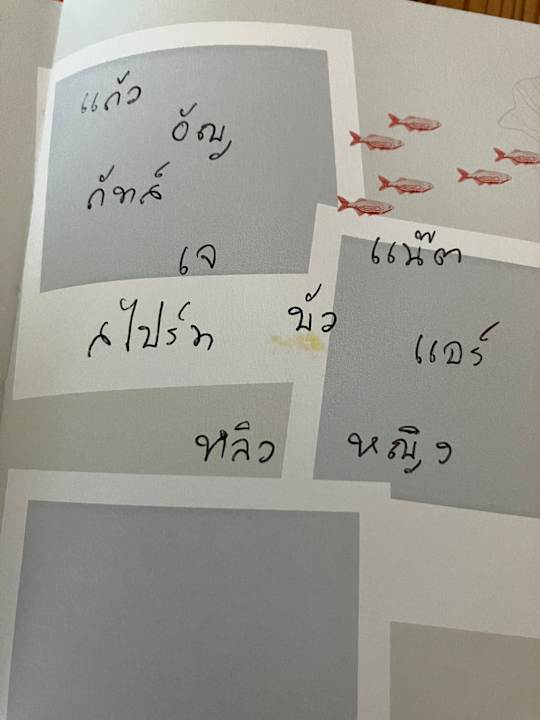 แก้ว
อัญ
ภัทส์
เจ
แน๊ต
สไปร์ท
บัว
แอร์
หลิว
หญิง